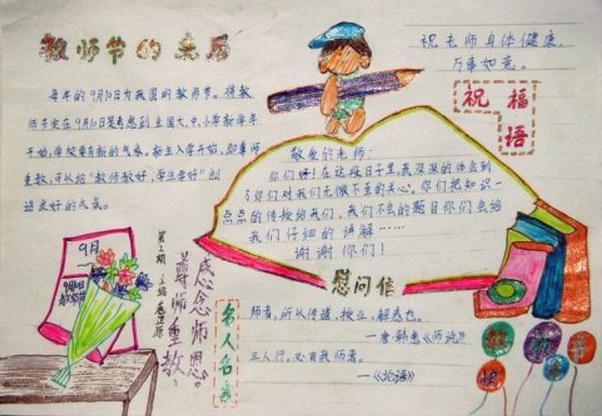 教师节的来历
每年的9月10日为我国的教师节。将教
师节定在9月10日是考虑到全国大、中、小学新学年
开始,学校要有新的气象。新生入学开始,即尊师
重教,可以给“教师教好,学生学好”创
造良好的气氛。
祝老师身体健康,
万事如意。
祝福
语
敬爱的老师:
你们好!在这段日子里,我深深的体会到
了你们对我们无微不至的关心。你们把知识一
点点的传授给我们,我们不会的题目你们会给
我们仔细的讲解……
谢谢你们!
慰问信
9月
第2期 主编
感念师恩。
尊师重教,
名人名言
师者,所以传道、授业、解惑也。
—唐·韩愈《师说》
三人行,必有我师焉。
—《论语》